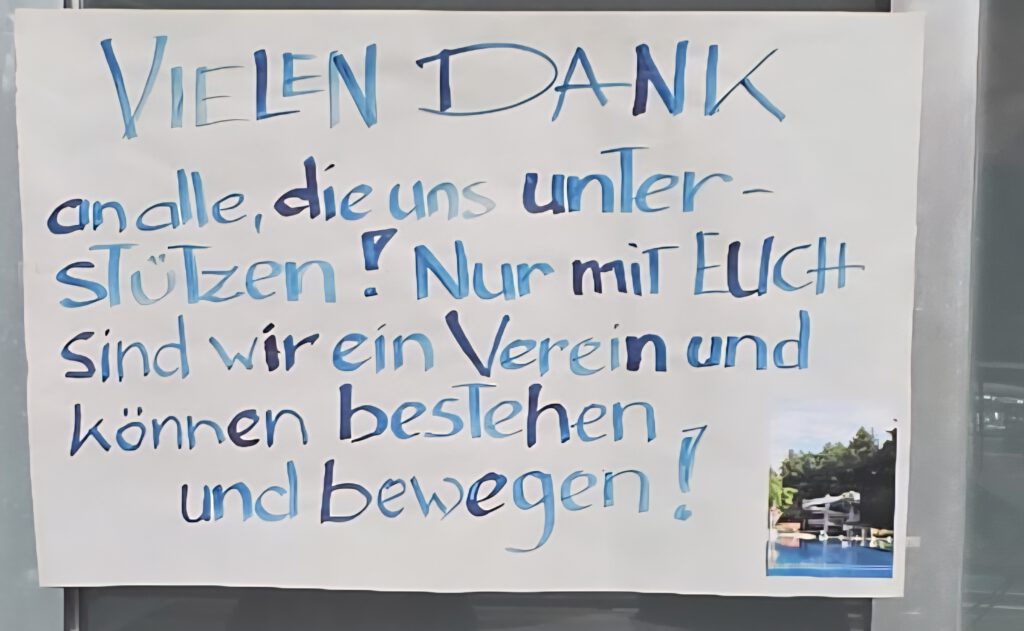 VIELEN DANK
an alle, die uns unter-
stützen! Nur mit EUCH
sind wir ein Verein und
können bestehen
und bewegen!